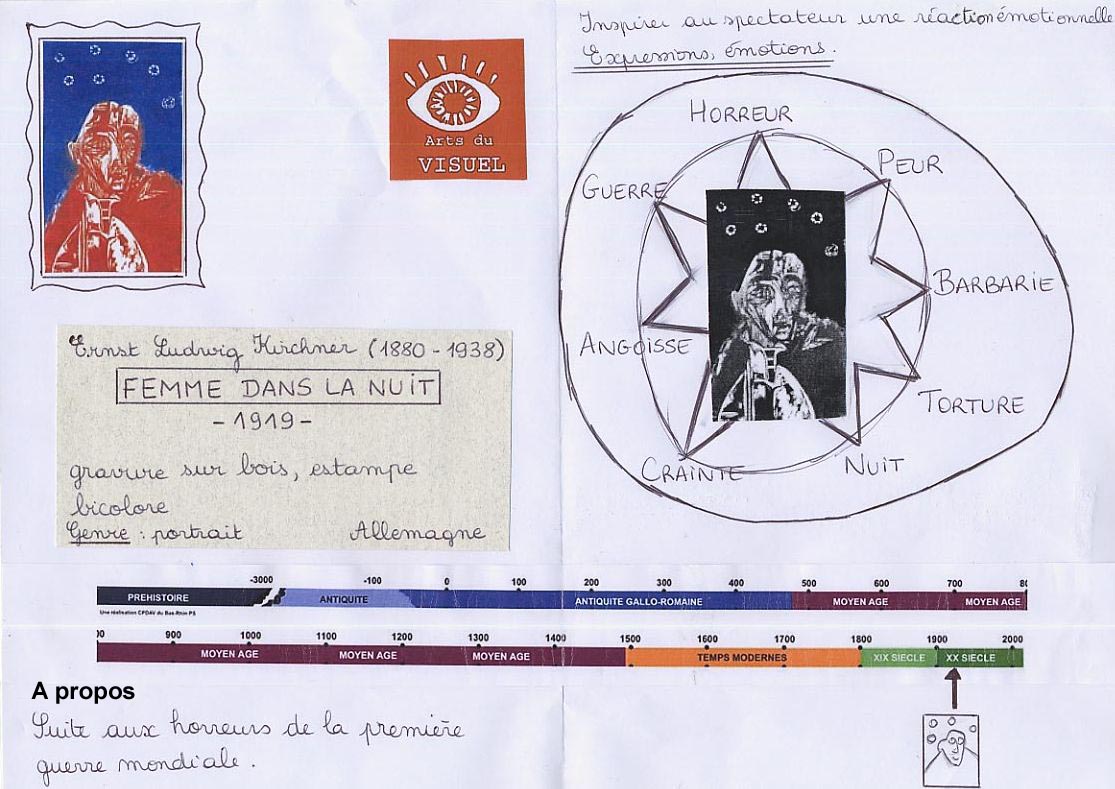 Inspirer au spectateur une réaction émotionnelle
Expressions, émotions.
Arts du
VISUEL
HORREUR
PEUR
GUERRE
BARBARIE
ANGOISSE
TORTURE
CRAINTE
NUIT
Ernst Ludwig Kirchner (1880 - 1938)
FEMME DANS LA NUIT
- 1919 -
gravure sur bois, estampe
bicolore
Genre : portrait Allemagne
-3000 -100 0 100 200 300 400 500 600 700 80
PREHISTOIRE ANTIQUITE ANTIQUITE GALLO-ROMAINE MOYEN AGE MOYEN AGE
Une réalisation CPDAV du Bas-Rhin PS
00 900 1000 1100 1200 1300 1400 1500 1600 1700 1800 1900 2000
MOYEN AGE MOYEN AGE MOYEN AGE TEMPS MODERNES XIX SIECLE XX SIECLE
A propos
Suite aux horreurs de la première
guerre mondiale.